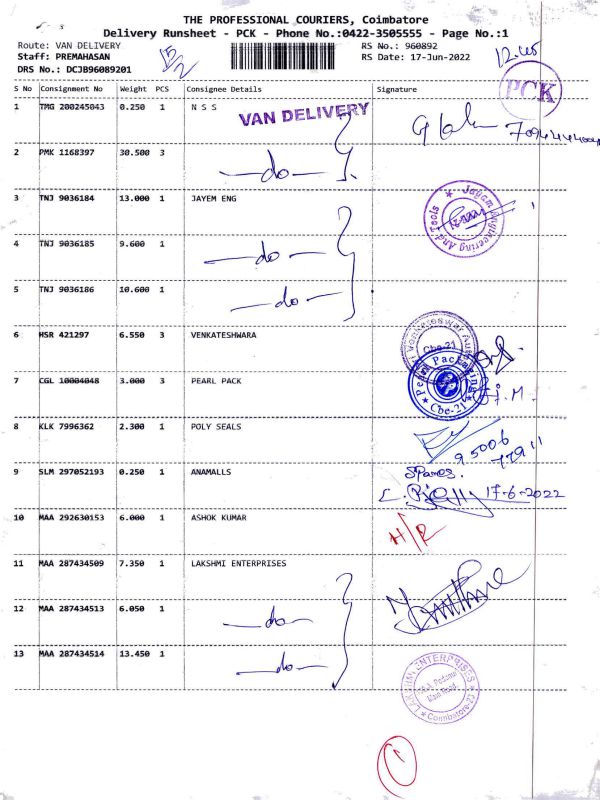 THE PROFESSIONAL COURIERS, Coimbatore
Delivery Runsheet - PCK - Phone No.:0422-3505555 - Page No.:1
Route: VAN DELIVERY
RS No.: 960892
Staff: PREMAHASAN
RS Date: 17-Jun-2022
DRS No.: DCJB96089201
12.45
PCK
S No Consignment No Weight PCS Consignee Details Signature
1 TMG 200245043 0.250 1 N S S
VAN DELIVERY
2 PMK 1168397 30.500 3 —do—
3 TNJ 9036184 13.000 1 JAYEM ENG
Jayam Engineering And Tools
4 TNJ 9036185 9.600 1 —do—
5 TNJ 9036186 10.600 1 —do—
6 HSR 421297 6.550 3 VENKATESHWARA
Cbe-21
7 CGL 10004048 3.000 3 PEARL PACK
Pearl Packaging
Cbe-21
8 KLK 7996362 2.300 1 POLY SEALS
95006
77911
9 SLM 297052193 0.250 1 ANAMALLS
Spares.
17-6-2022
10 MAA 292630153 6.000 1 ASHOK KUMAR
H/R
11 MAA 287434509 7.350 1 LAKSHMI ENTERPRISES
12 MAA 287434513 6.050 1 —do—
13 MAA 287434514 13.450 1 —do—
LAKSHMI ENTERPRISES
Main Road,
Coimbatore-22